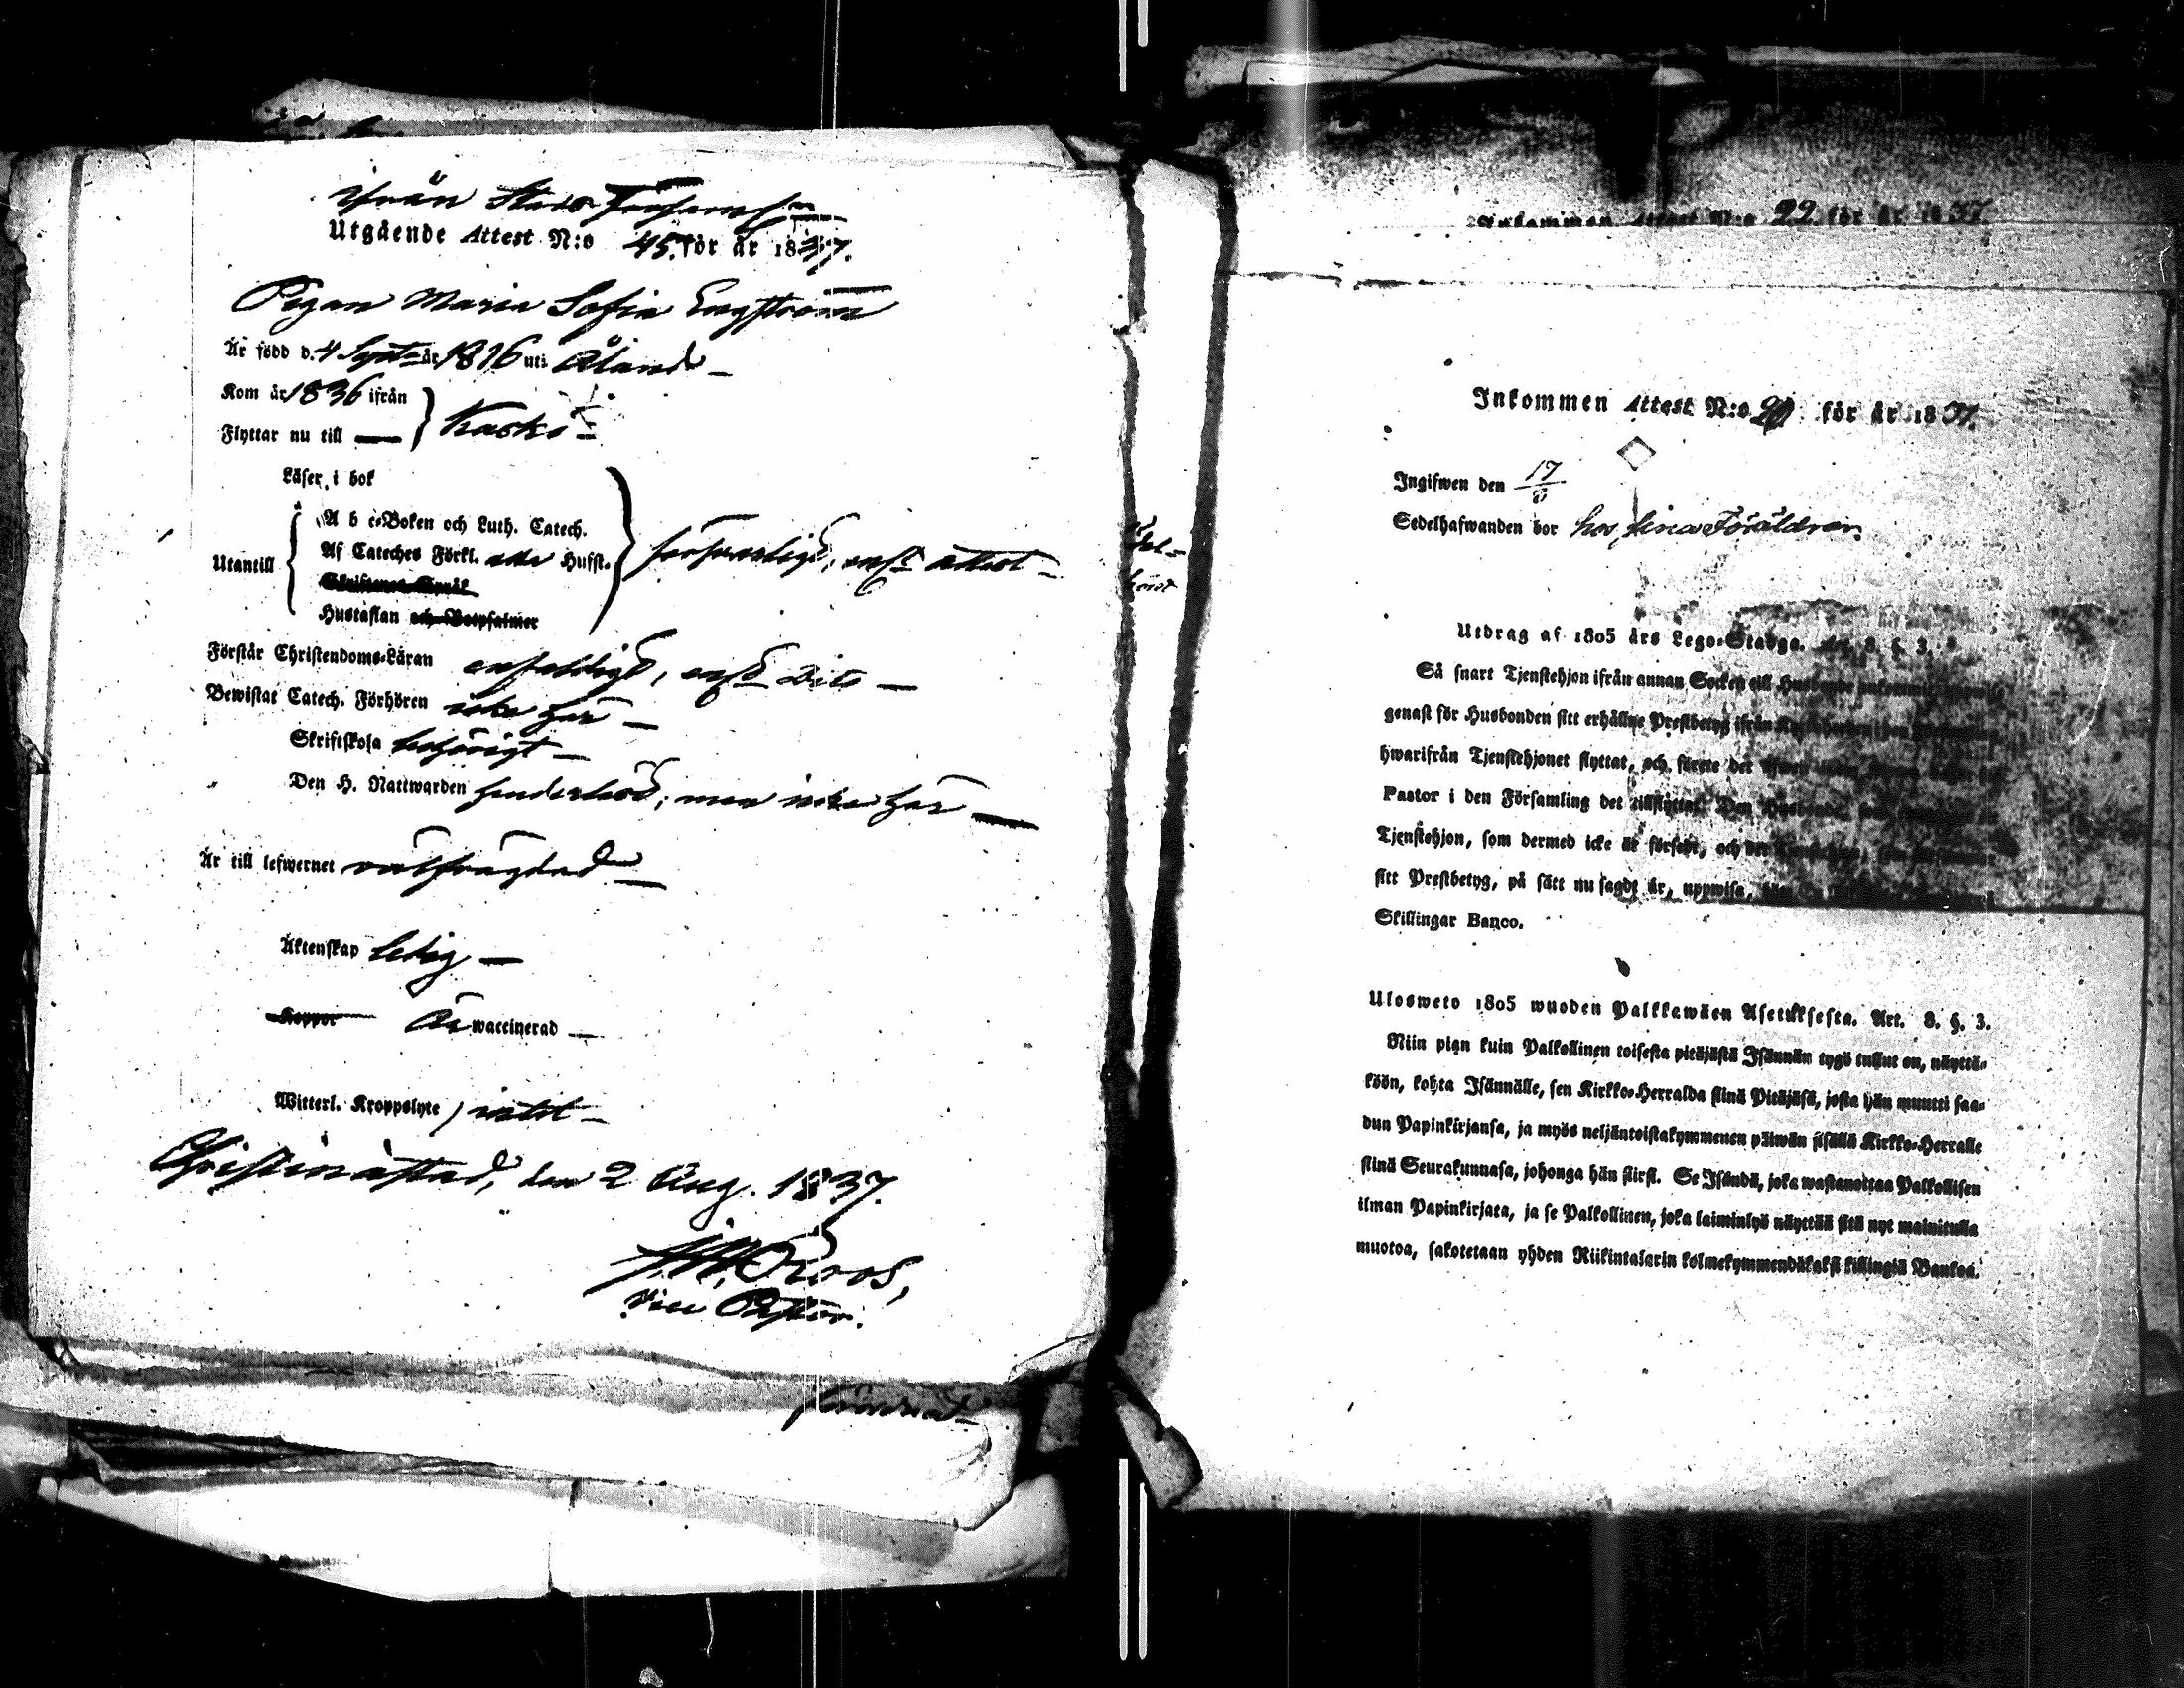 ifrån Stads Församl:
Utgående Attest N:o 45. för år 1837.
Pigan Maria Sofia Engström
Är född d. 4 Sept. år 1816 uti Åland
Kom år 1836 ifrån
Flyttar nu till
Kaskö
Läser i bok
Utantill
A b c-Boken och Luth. Catech.
Af Cateches Förkl. Husst.
Skriftenes Språk
Hustaflan och Botpsalmer
försvarligt, enl. attest
Förstår Christendoms-Läran enfaldigt, enl. Dito
Bewistat Catech. Förhören icke här
Skriftskola behörigt
Den H. Nattwarden men icke här
Är till lefwernet välfrägdad
Äktenskap ledig
Koppor Är waccinerad
Witterl. Kroppslyte intet
Christinæstad, den 2 Aug. 1837.
Roos,
Vice Pastor.
Inkommen Attest N:o 22. för år 1837.
Inkommen Attest N:o för år 1837.
Ingifwen den 17/8
Sedelhafwanden bor hos sina Föräldrar
Utdrag af 1805 års Lego-Stadga. Art. 8. §. 3.
Så snart Tjenstehjon ifrån annan Socken till Husbonde
genast för Husbonden sitt erhållne Prestbetyg ifrån
hwarifrån Tjenstehjonet flyttat, och förete det
Pastor i den Församling det tillflyttat. Den
Tjenstehjon, som dermed icke är försedt, och det
sitt Prestbetyg, på sätt nu sagdt är, uppwisa,
Skillingar Banco.
Ulosweto 1805 wuoden Palkkawäen Asetuksesta. Art. 8. §. 3.
Niin pian kuin Palkollinen toisesta pitäjästä Isännän tygö tullut on, näyttä-
köön, kohta Isännälle, sen Kirkko-Herralda siinä Pitäjäsä, josta hän muutti saa-
dun Papinkirjansa, ja myös neljäntoistakymmenen päiwän sisällä Kirkko-Herralle
siinä Seurakunnasa, johonga hän siirsi. Se Isändä, joka wastanottaa Palkollisen
ilman Papinkirjata, ja se Palkollinen, joka laiminlyö näyttää sitä nyt mainitulla
muotoa, sakotetaan yhden Riikintalarin kolmekymmendäkaksi killingiä Bankoa.